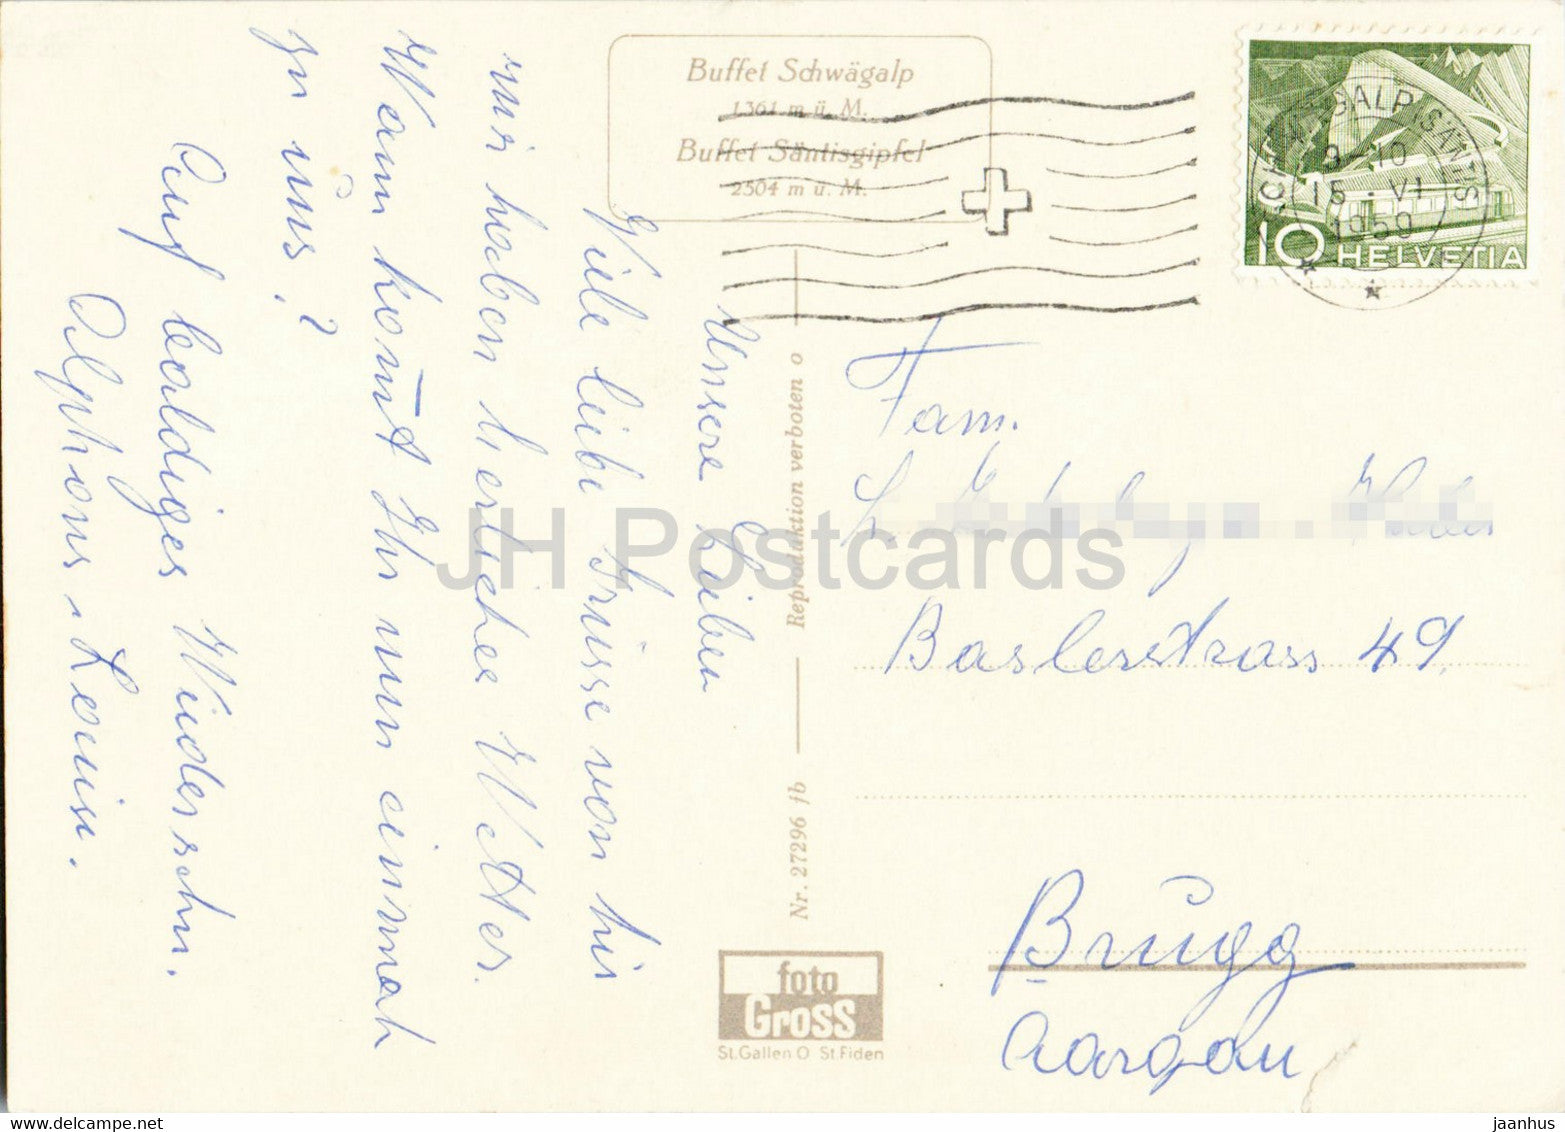 Buffet Schwägalp
1361 m ü. M.
Buffet Säntisgipfel
2504 m ü. M.
SÄNTIS
9-10
15.VI
1959
10 HELVETIA
Unsere Lieben
Viele liebe Grüsse von hir
wir haben herliches Wetter.
Wann kom̅t Ihr nun einmah
zu uns?
Auf baldiges Widersehn.
Alphons, Louise.
Nr. 27296 fb
Reproduktion verboten o
Fam.
Baslerstrass 49.
Brugg
Aargau
foto
Gross
St.Gallen O St.Fiden
JH Postcards
www.delcampe.net
jaanhus